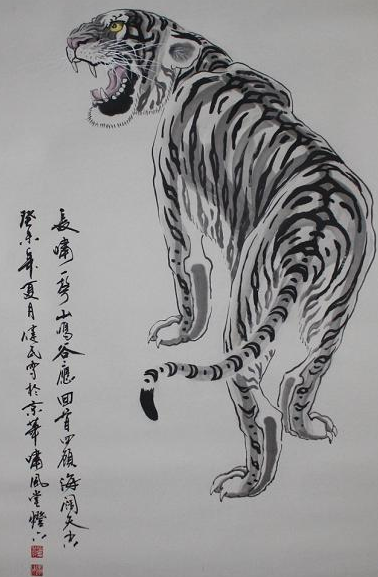 長嘯一聲山鳴谷應回首四顧海阔天空
癸未年夏月健民寫於京華嘯風堂燈下